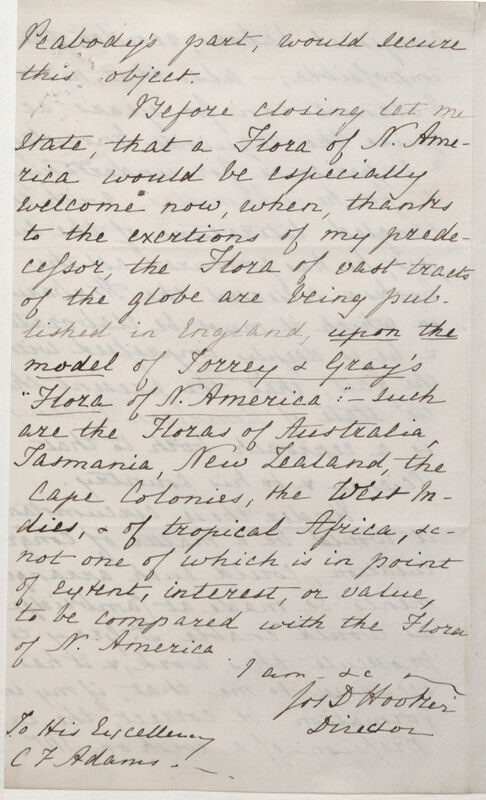 Peabody's part, would secure
this object.
Before closing let me
state, that a Flora of N. Ame-
rica would be especially
welcome now, when, thanks
to the exertions of my prede-
cessor, the Flora of vast tracts
of the globe are being pub-
lished in England, upon the
model of Torrey & Gray's
"Flora of N. America":- such
are the Floras of Australia,
Tasmania, New Zealand, the
Cape Colonies, the West In-
dies, & of tropical Africa, &c-
not one of which is in point
of extent, interest, or value,
to be compared with the Flora
of N. America
I am &c
Jos D Hooker
Director
To His Excellency
C F Adams.-